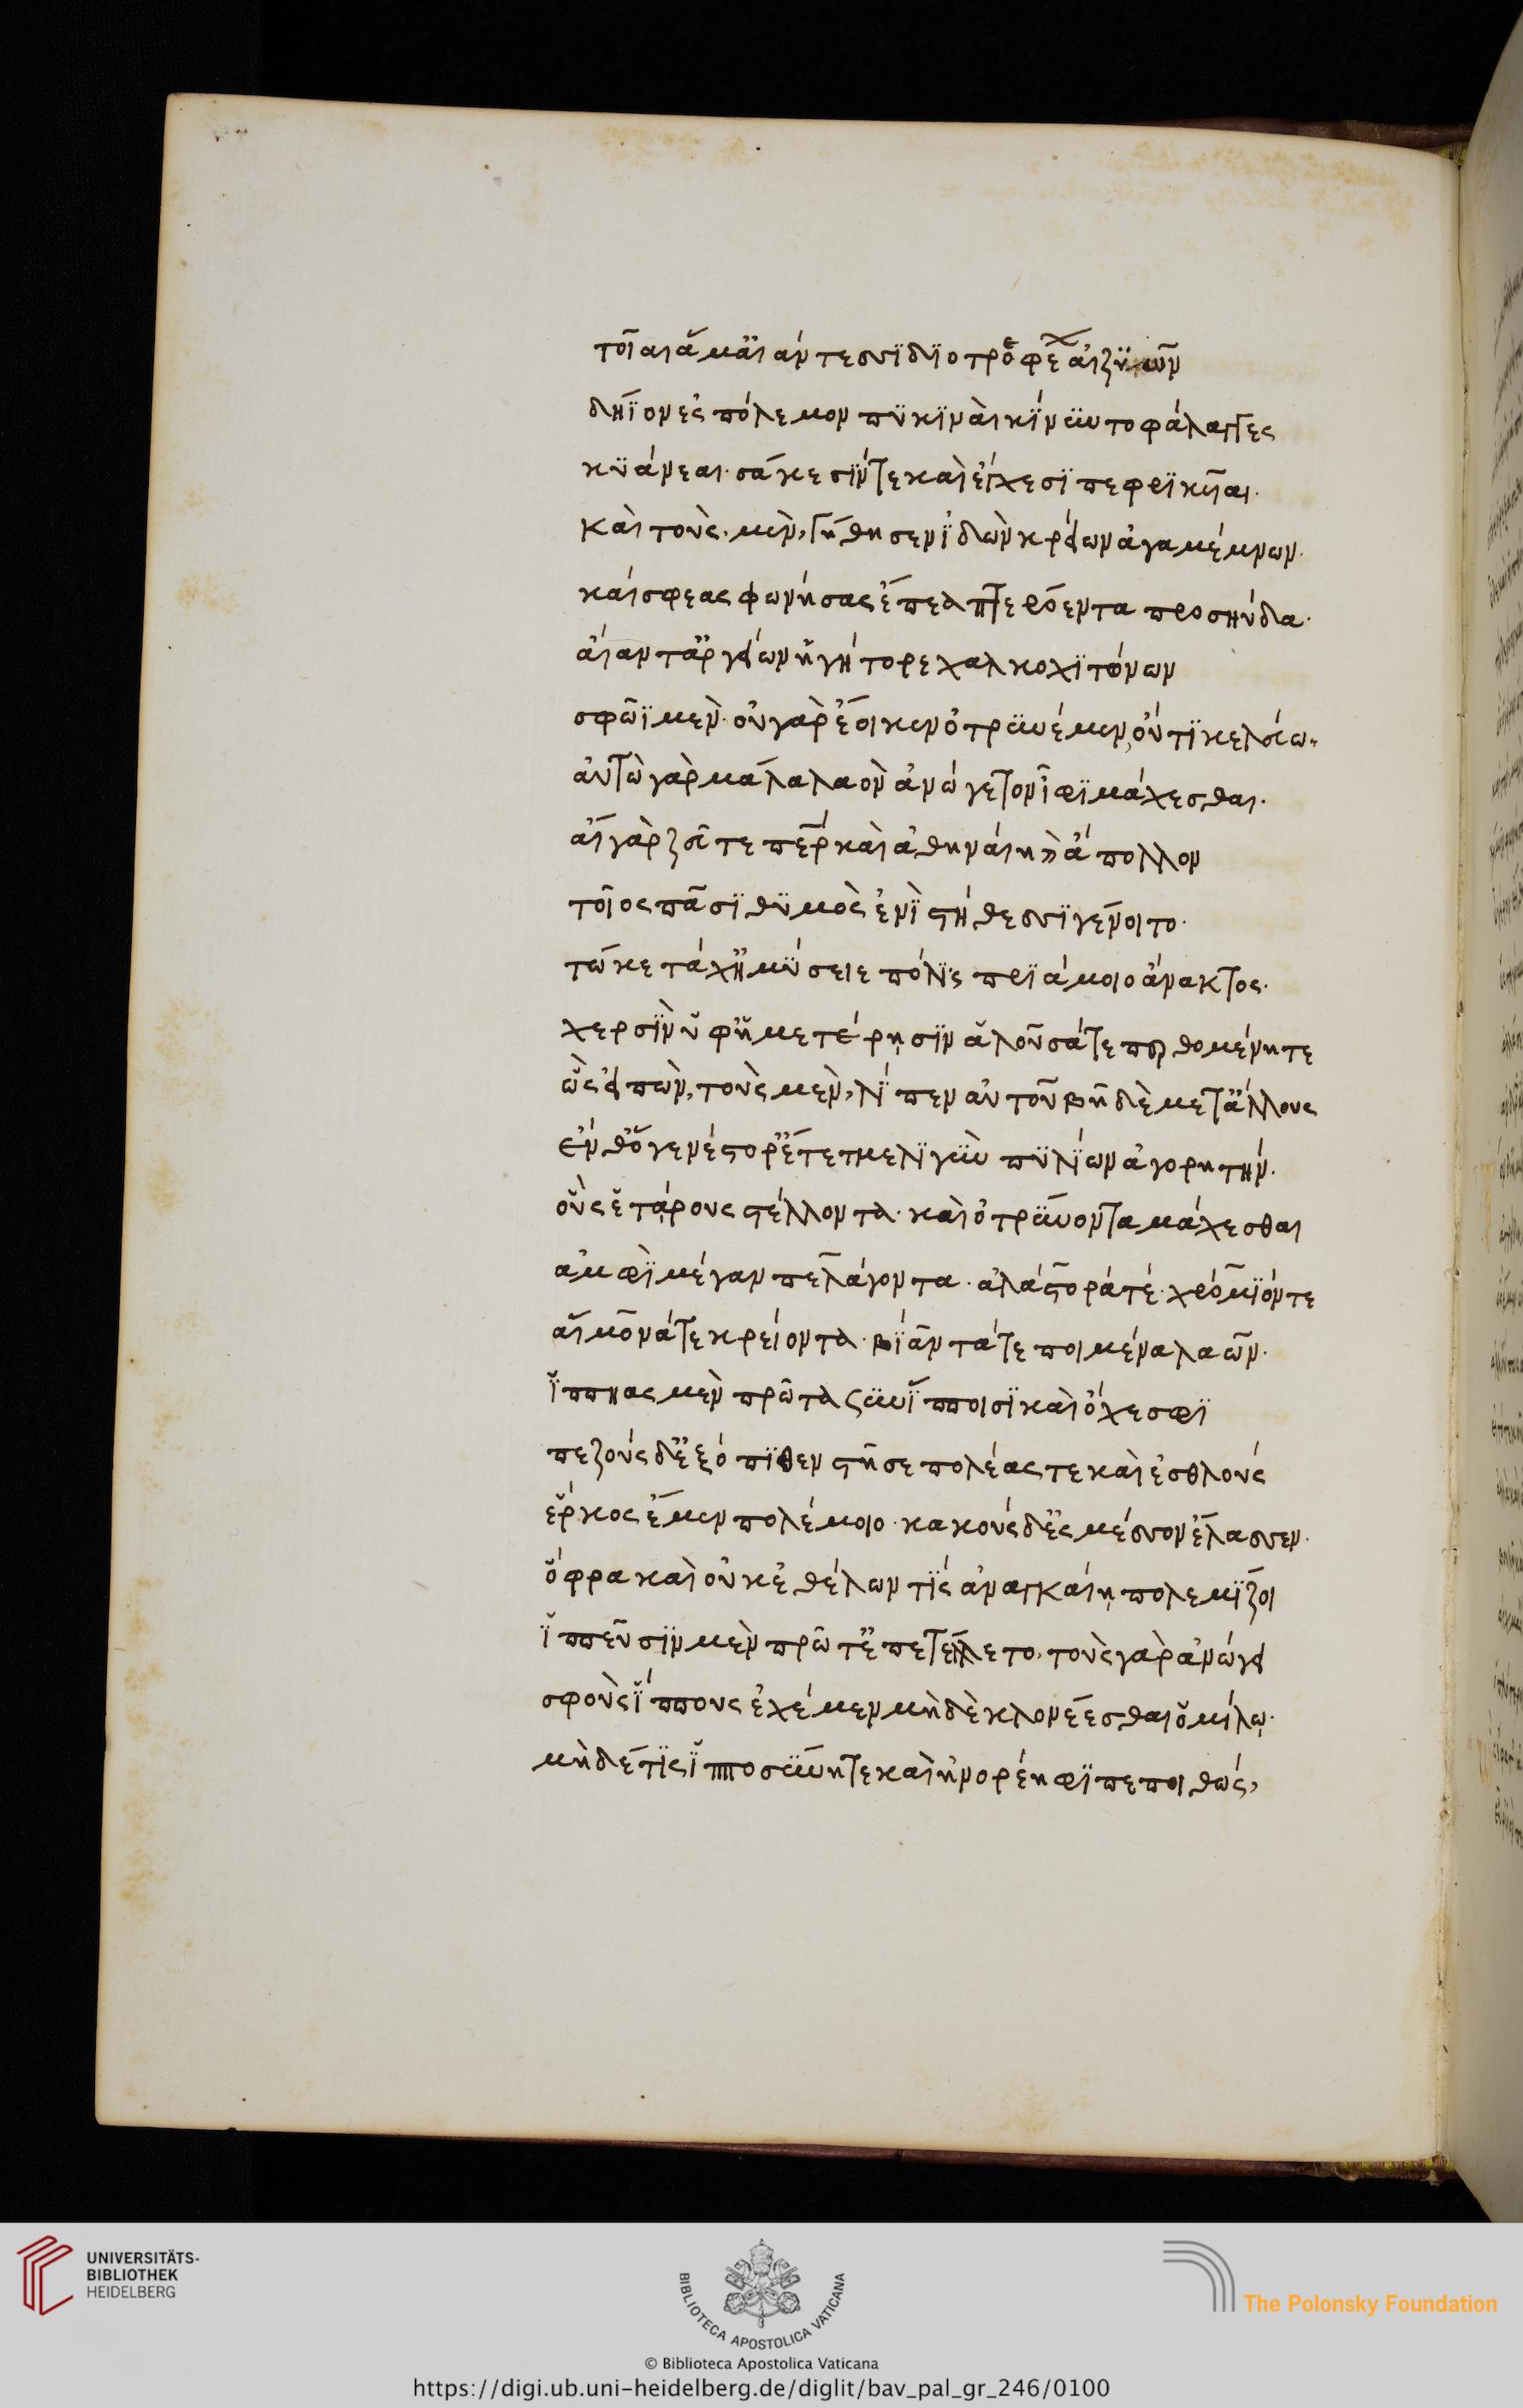 τοῖαι ἅμ' αἰάντεσσι διοτροφέων αἰζηῶν
δήϊον ἐς πόλεμον πυκιναὶ κίνυντο φάλαγγες
κυάνεαι· σάκεσίν τε καὶ ἔγχεσι πεφρικυῖαι·
καὶ τοὺς μὲν, γήθησεν ἰδὼν κρείων ἀγαμέμνων·
καί σφεας φωνήσας ἔπεα πτερόεντα προσηύδα·
αἴαντ' ἀργείων ἡγήτορε χαλκοχιτώνων
σφῶϊ μὲν· οὐ γὰρ ἔοικεν ὀτρυνέμεν, οὔτι κελεύω·
αὐτὼ γὰρ μάλα λαὸν ἀνώγετον ἶφι μάχεσθαι·
αἲ γὰρ ζεῦ τε πάτερ καὶ ἀθηναίη καὶ ἄπολλον
τοῖος πᾶσι θυμὸς ἐνὶ στήθεσσι γένοιτο·
τῶ κε τάχ' ἠμύσειε πόλις πριάμοιο ἄνακτος·
χερσὶν ὑφ' ἡμετέρῃσιν ἁλοῦσά τε περθομένη τε
ὣς εἰπὼν, τοὺς μὲν, λίπεν αὐτοῦ βῆ δὲ μετ' ἄλλους
ἔνθ' ὅγε νέστορ' ἔτετμε λιγὺν πυλίων ἀγορητήν·
οὓς ἑτάρους στέλλοντα· καὶ ὀτρύνοντα μάχεσθαι
ἀμφὶ μέγαν πελάγοντα· ἀλάστορά τέ· χρόμιόν τε
αἵμονά τε κρείοντα· βίαντά τε ποιμένα λαῶν·
ἱππῆας μὲν πρῶτα σὺν ἵπποισι καὶ ὄχεσφι
πεζοὺς δ' ἐξόπιθεν στῆσε πολέας τε καὶ ἐσθλοὺς
ἕρκος ἔμεν πολέμοιο· κακοὺς δ' ἐς μέσσον ἔλασσεν·
ὄφρα καὶ οὐκ ἐθέλων τὶς ἀναγκαίῃ πολεμίζοι
ἱππεῦσιν μὲν πρῶτ' ἐπετέλλετο, τοὺς γὰρ ἀνώγει
σφοὺς ἵππους ἐχέμεν μὴ δὲ κλονέεσθαι ὁμίλῳ·
μὴ δέ τις ἱπποσύνῃ τε καὶ ἠνορέηφι πεποιθώς,
UNIVERSITÄTS-
BIBLIOTHEK
HEIDELBERG
BIBLIOTECA APOSTOLICA VATICANA
The Polonsky Foundation
© Biblioteca Apostolica Vaticana
https://digi.ub.uni-heidelberg.de/diglit/bav_pal_gr_246/0100